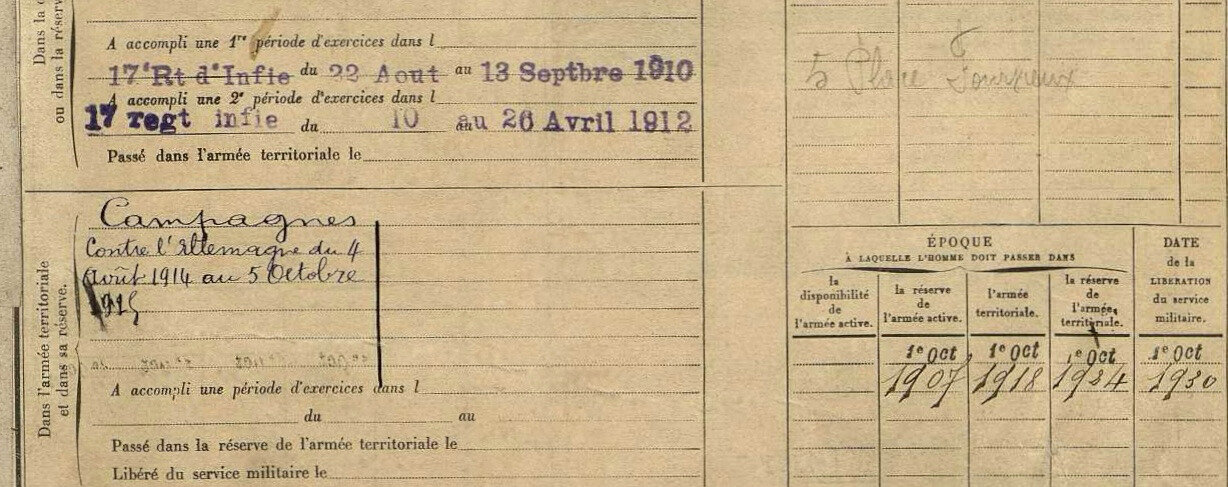 Dans la
ou dans la réserve
A accompli une 1re période d'exercices dans l
17e Rt d'Infie du 22 Aout au 13 Septbre 1910
A accompli une 2e période d'exercices dans l
17 regt infie du 10 au 26 Avril 1912
Passé dans l'armée territoriale le
5 Place
Dans l'armée territoriale
et dans sa réserve.
Campagnes
Contre l'Allemagne du 4
Août 1914 au 5 Octobre
1915
A accompli une période d'exercices dans l
du au
Passé dans la réserve de l'armée territoriale le
Libéré du service militaire le
ÉPOQUE
À LAQUELLE L'HOMME DOIT PASSER DANS
la disponibilité de l'armée active.
la réserve de l'armée active.
l'armée territoriale.
la réserve de l'armée territoriale.
DATE de la LIBÉRATION du service militaire.
1e Oct 1e Oct 1e Oct 1e Oct
1907 1918 1924 1930